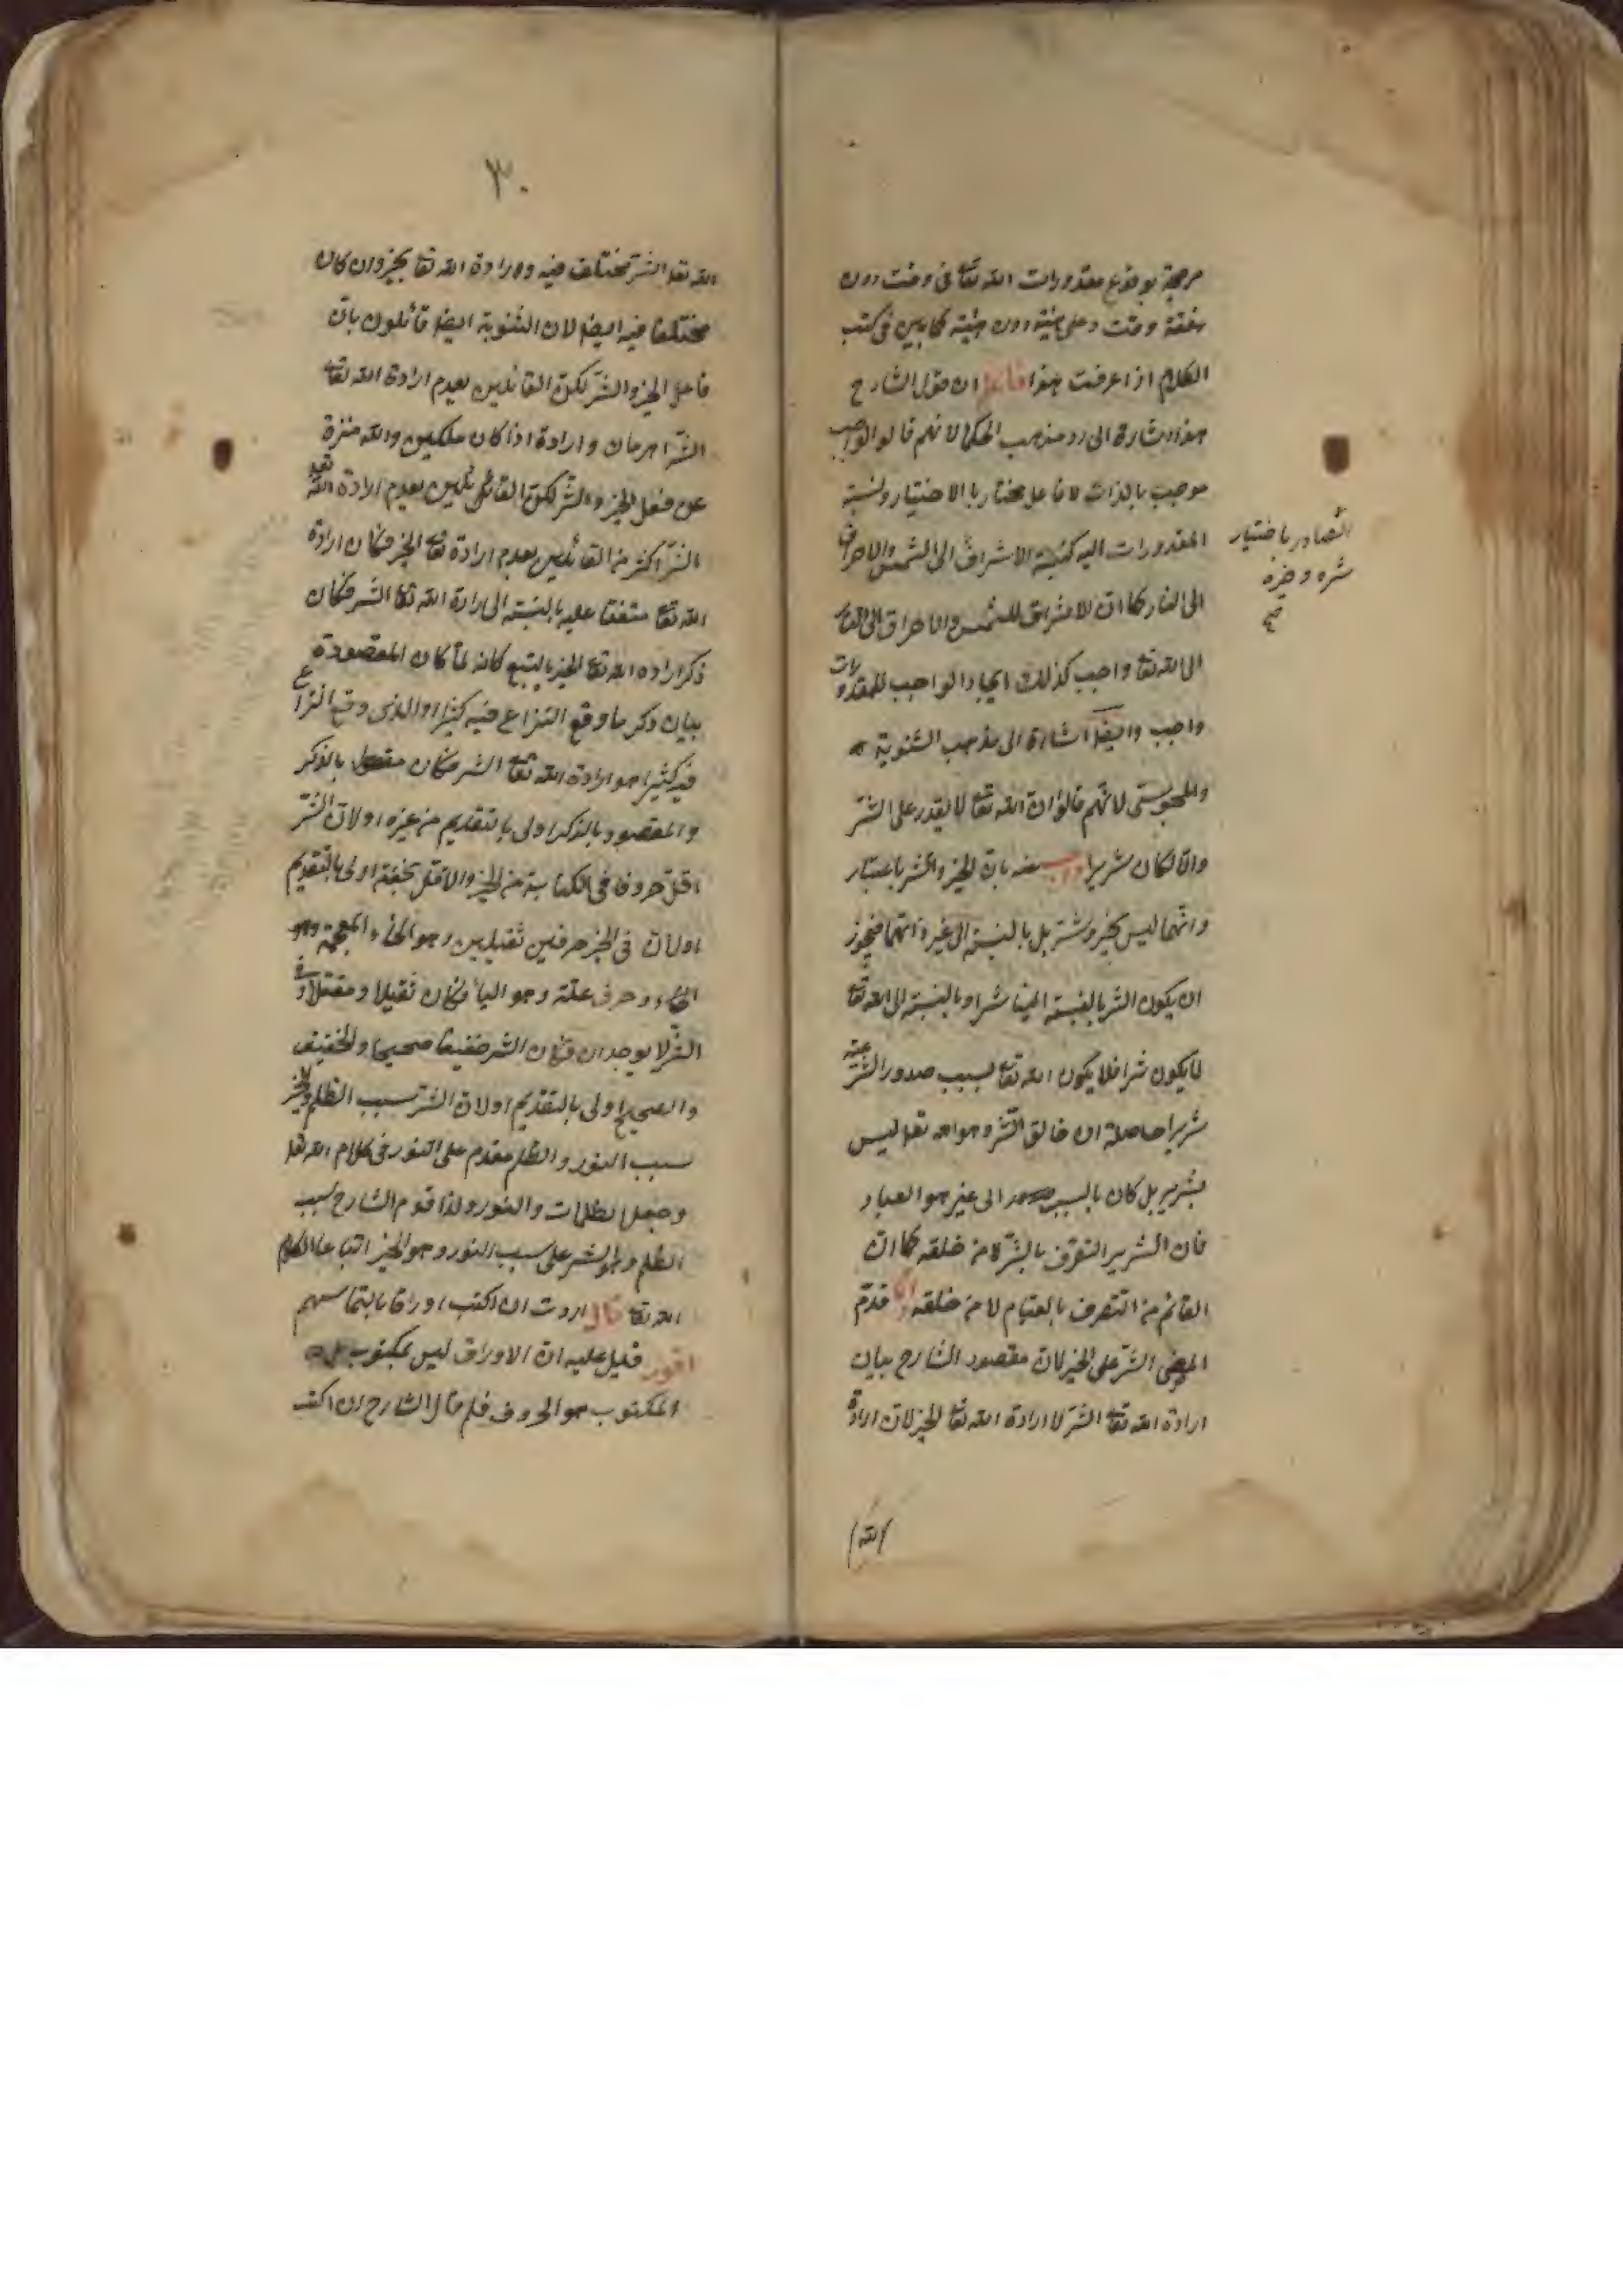 مرجحة لوقوع مقدورات الله تعالى في وقت دون
وقت وعلى هيئة دون هيئة كما بين في كتب
الكلام اذا عرفت هذا فاعلم ان قول الشارح
هذا اشارة الى رد مذهب الحكما لانهم قالوا الواجب
موجب بالذات لا فاعل مختار بالاختيار ونسبة
المقدورات اليه كنسبة الاشراق الى الشمس والاحراق
الى النار كما ان الاشراق للشمس والاحراق الى
الى الله تعا واجب كذلك ايجاد الواجب للمقدورات
واجب وايضا اشارة الى مذهب الثنوية
والمجوسى لانهم قالوا ان الله تعا لا يقدر على الشر
والا لكان شريرا واجيب عنه بان الخير والشر باعتبار
ذاتهما ليس بخير وشر بل بالنسبة الى غير ذاتهما فيجوز
ان يكون الشر بالنسبة الينا شرا وبالنسبة الى الله تعا
لا يكون شرا فلا يكون الله تعا بسبب صدور الشر عنه
شريرا حاصله ان خالق الشر وهو الله تعا ليس
بشرير بل كان الى غير هو العباد
فان الشرير بالشر لا من خلقه كما ان
القائم من اتصف بالقيام لا من خلقه وانما قدم
الشر على الخير لان مقصود الشارح بيان
ارادة الله تعا الشر لا ارادة الله تعا الخير لان ارادة
الله
الصادر باختيار
شره وخيره
صح
٣٠
الله تعا الشر مختلف فيه وارادة الله تعا بخير وان كان
مختلفا فيه ايضا لان الثنوية ايضا قائلون بان
فاعل الخير والشر لكن القائلين بعدم ارادة الله تعا
الشر اهرمان وارادة اذا كان ملكين والله منزه
عن فعل الخير والشر لكن القائلين بعدم ارادة الله تعا
الشر اكثر من القائلين بعدم ارادة تعا الخير فكان ارادة
الله تعا متفقا عليه بالنسبة الى ارادة الله تعا الشر فكان
ذكر اراده الله تعا الخير بالتبع كانه لما كان المقصودة
بيان ذكر ما وقع النزاع فيه كثيرا والذى وقع النزاع
فيه كثيرا هو ارادة الله تعا الشر فكان مقصودا بالذكر
والمقصود بالذكر اولى بالتقديم من غيره او لان الشر
اقل حروفا فى الكتابة من الخير والاقل اولى بالتقديم
او لان فى الخير حرفين ثقيلين وهو الخاء المعجمة وهو
الخاء وحرف علة وهو الياء فكان ثقيلا ومعتلا وفى
الشر لا يوجدان فكان الشر خفيفا صحيحا والخفيف
والصحيح اولى بالتقديم او لان الشر سبب الظلم والخير
سبب النور والظلم مقدم على النور فى كلام الله تعا
وجعل الظلمات والنور ولذا قدم الشارح سبب
الظلم وهو الشر على سبب النور وهو الخير اتباعا لكلام
الله تعا قال اردت ان اكتب اوراقا بالتماسهم
اقول قيل عليه ان الاوراق ليس بمكتوب بل
المكتوب هو الحروف فلم قال الشارح ان اكتب